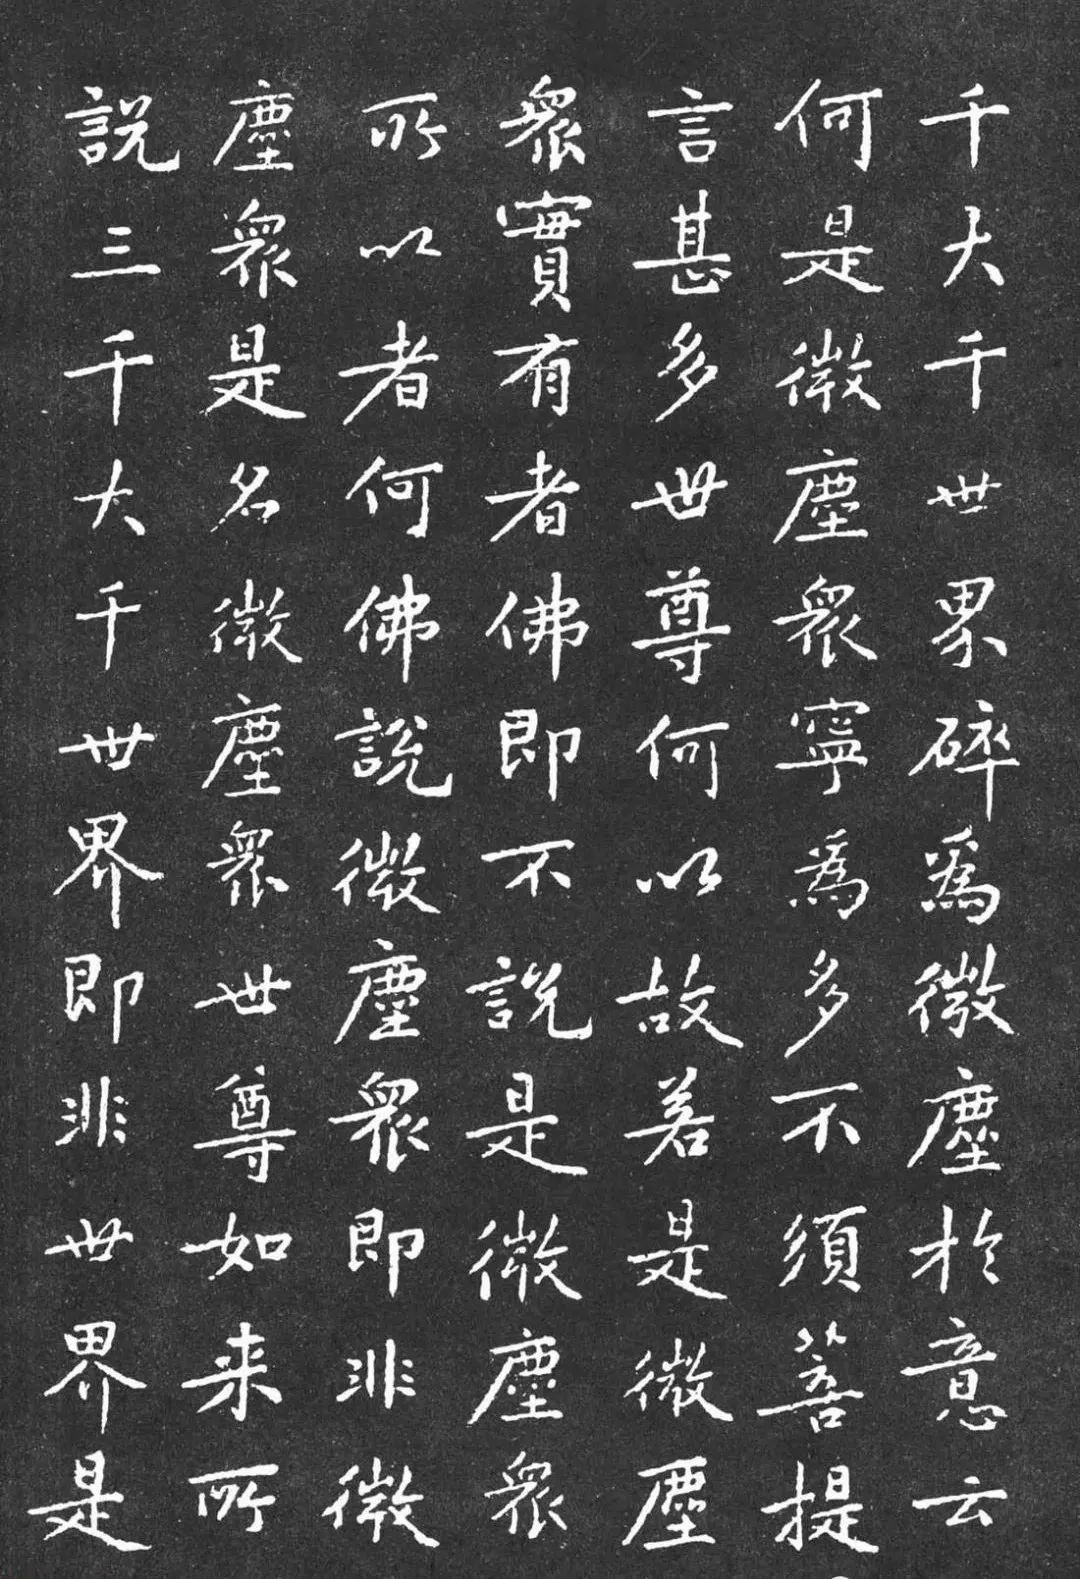 千大千世界碎爲微塵於意云
何是微塵眾寧爲多不須菩提
言甚多世尊何以故若是微塵
眾實有者佛即不說是微塵眾
所以者何佛說微塵眾即非微
塵眾是名微塵眾世尊如来所
說三千大千世界即非世界是